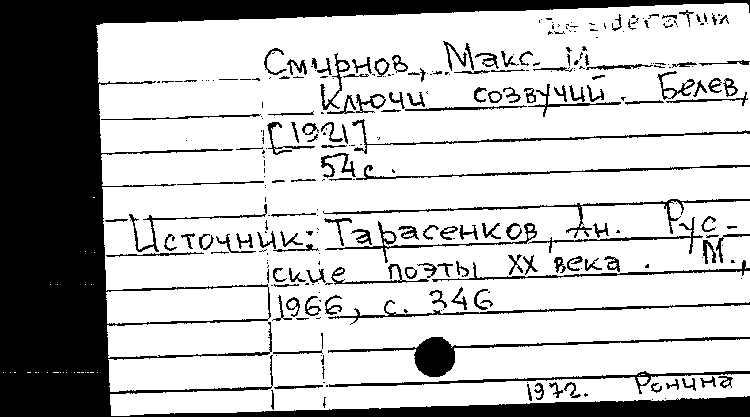 Desideratum
Смирнов, Макс. М
Ключи созвучий. Белев,
[1921]
54 с.
Источник: Тарасенков, Ан. Рус-
ские поэты XX века. М.,
1966, с. 346
1972. Ронина